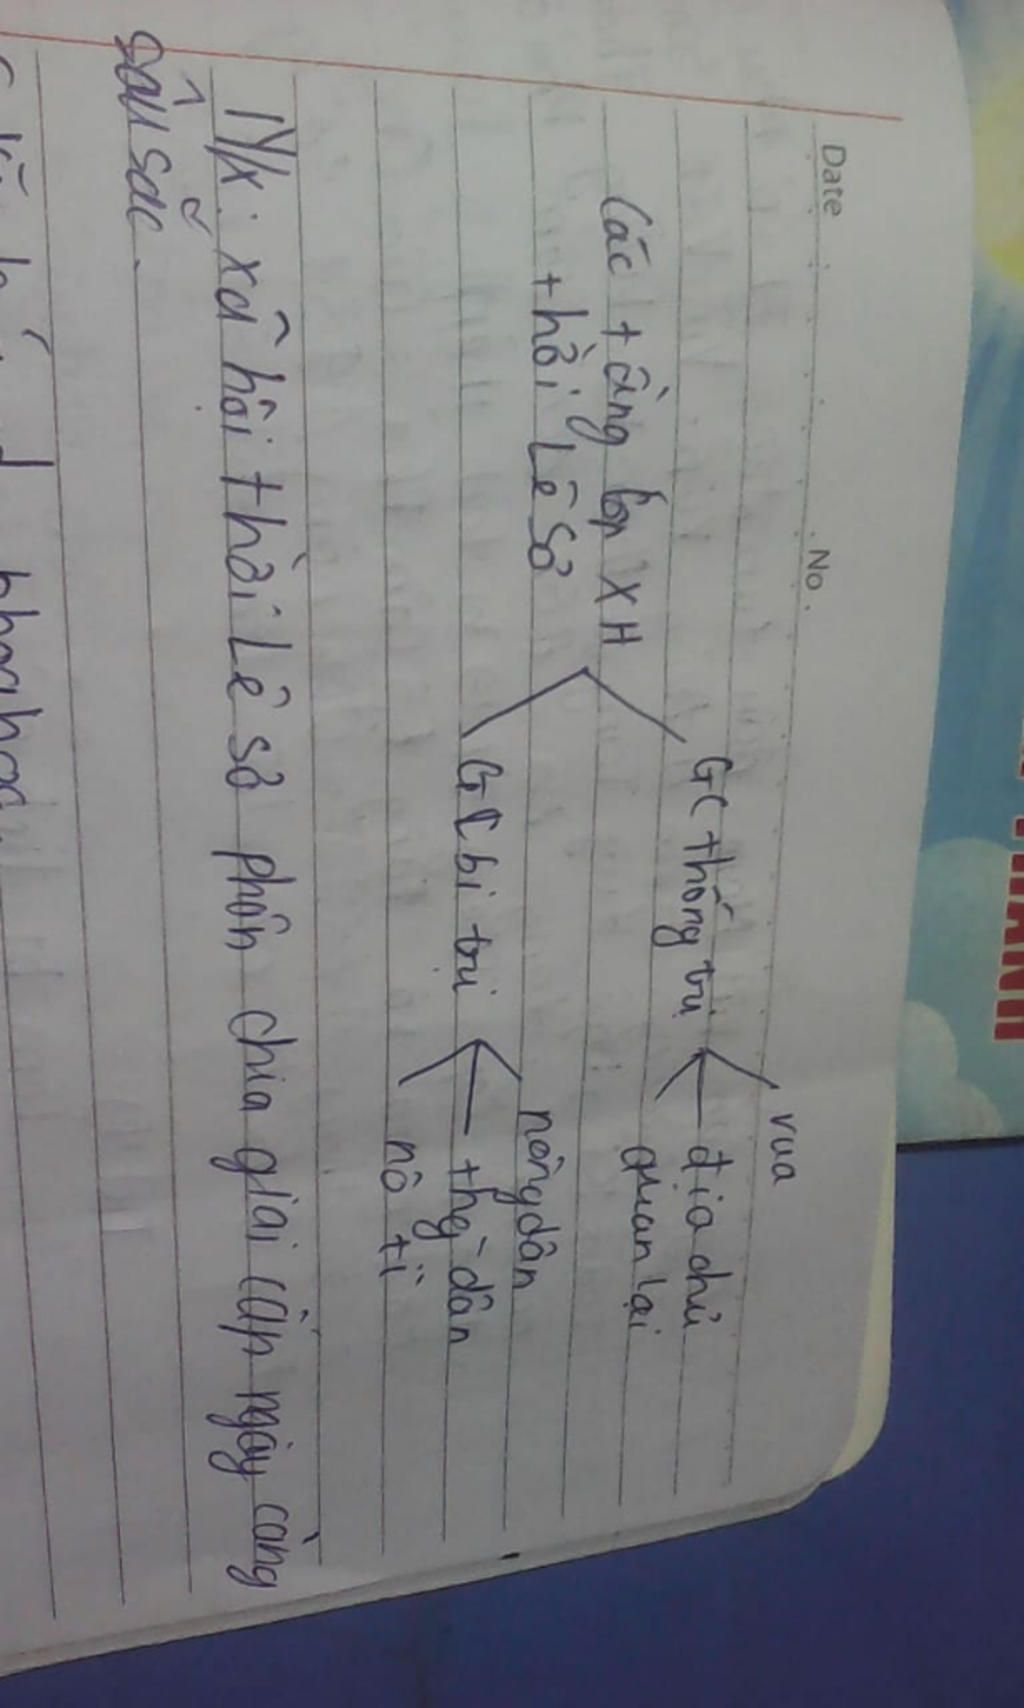 Date
No.
vua
GC thống trị
địa chủ
quan lại
Các tầng lớp XH
thời Lê Sơ
nông dân
GC bị trị
thg dân
nô tì
N/x: xã hội thời Lê sơ phân chia giai cấp ngày càng
sâu sắc.